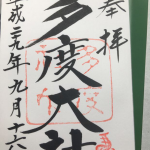 奉拝
多度大社
平成二十九年九月十六